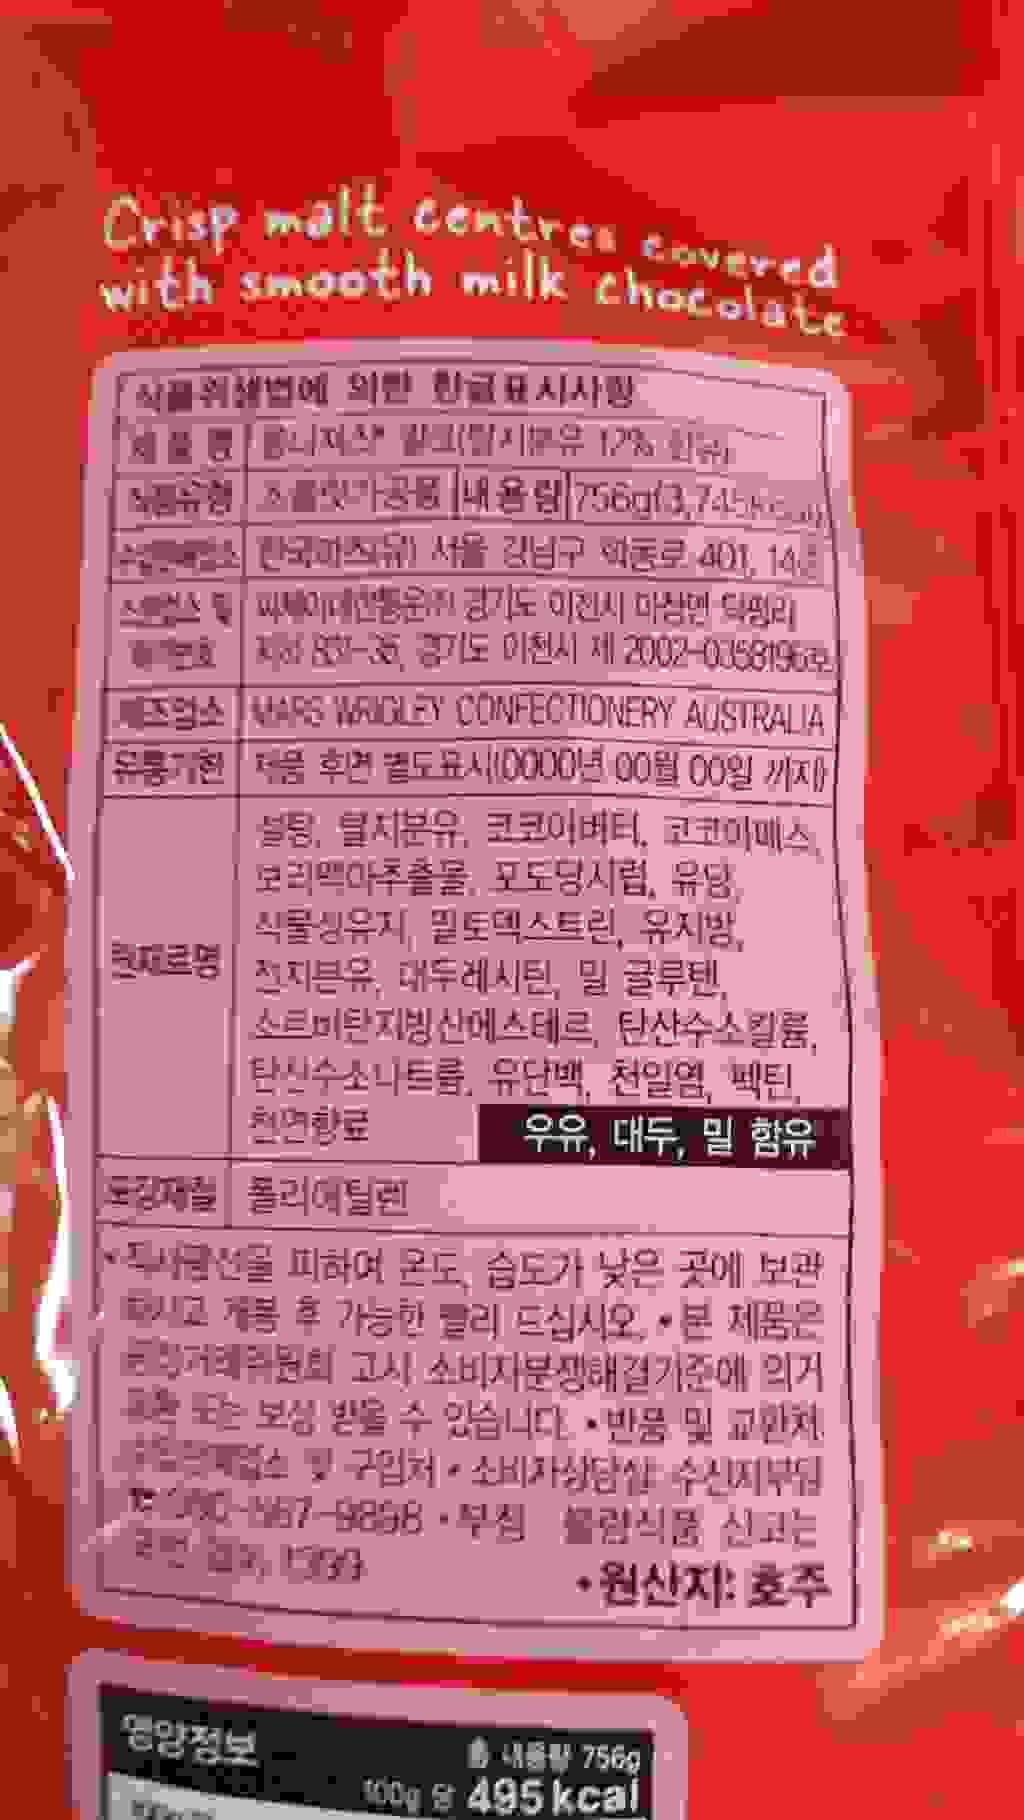 Crisp malt centres covered
with smooth milk chocolate
식품위생법에 의한 한글표시사항
제 품 명 몰티져스* 밀크(탈지분유 12% 함유)
식품유형 초콜릿가공품 내용량 756g(3,745kcal)
수입판매업소 한국마즈(유) 서울 강남구 학동로 401, 14층
경기도 이천시 마장면 덕평리
경기도 이천시 제 2002-0358196호
제조업소 MARS WRIGLEY CONFECTIONERY AUSTRALIA
유통기한 제품 후면 별도표시(0000년 00월 00일 까지)
원재료명
설탕, 탈지분유, 코코아버터, 코코아매스,
보리맥아추출물, 포도당시럽, 유당,
식물성유지, 말토덱스트린, 유지방,
전지분유, 대두레시틴, 밀 글루텐,
소르비탄지방산에스테르, 탄산수소칼륨,
탄산수소나트륨, 유단백, 천일염, 펙틴,
천연향료 우유, 대두, 밀 함유
포장재질 폴리에틸렌
• 직사광선을 피하여 온도, 습도가 낮은 곳에 보관
하시고 개봉 후 가능한 빨리 드십시오. • 본 제품은
공정거래위원회 고시 소비자분쟁해결기준에 의거
교환 또는 보상 받을 수 있습니다. • 반품 및 교환처:
수입판매업소 및 구입처 • 소비자상담실: 수신자부담
☎ 080-867-9898 • 부정 불량식품 신고는
국번 없이 1399
• 원산지: 호주
영양정보
총 내용량 756g
100g 당 495 kcal